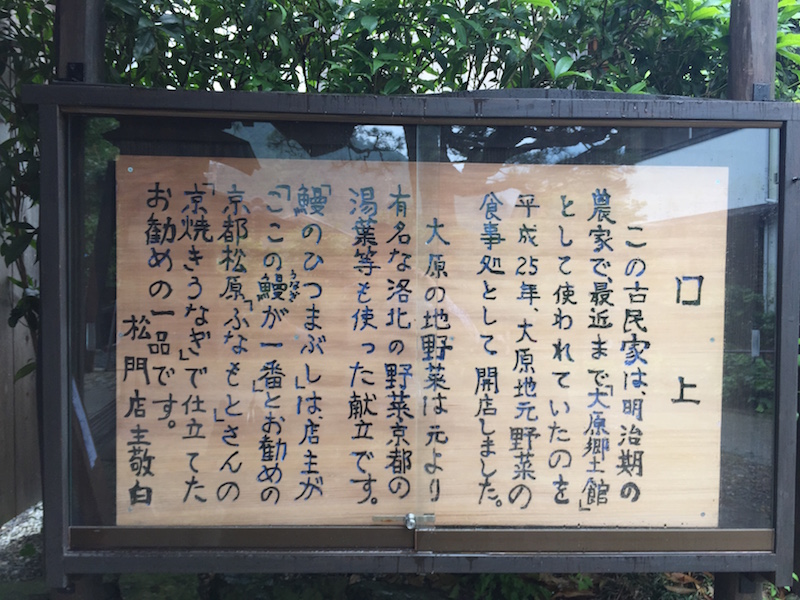 口上
この古民家は、明治期の
農家で、最近まで「大原郷土館」
として使われていたのを
平成25年、大原地元野菜の
食事処として、開店しました。
大原の地野菜は元より
有名な洛北の野菜京都の
湯葉等も使った献立です。
「鰻のひつまぶし」は、店主が
「ここの鰻が一番」とお勧めの
うなぎ
京都松原「ふなもと」さんの
「京焼きうなぎ」で仕立てた
お勧めの一品です。
松門店主敬白